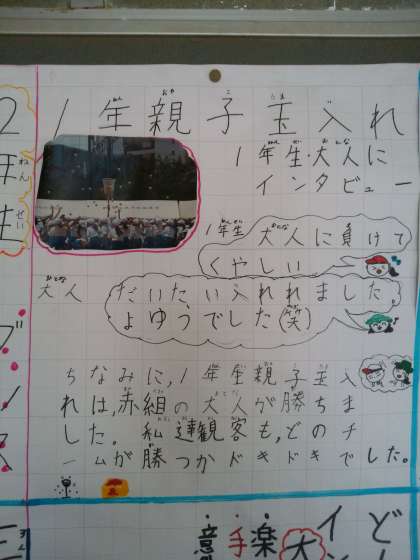 1年親子玉入れ
1年生・大人に
インタビュー
1年生 大人に負けて
くやしい
大人 だいたい入れれました。
よゆうでした(笑)
ちなみに、1年生親子玉入
れは、赤組の大人が勝ちま
した。私達観客も、どのチ
ームが勝つかドキドキでした。
2年生